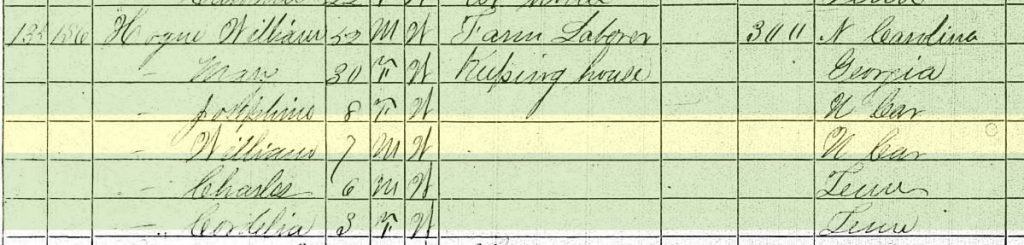 186 Hogue William 52 M W Farm Laborer 300 N Carolina
— Mary 30 F W Keeping house Georgia
— Josephine 8 F W N Car
— William 7 M W N Car
— Charles 6 M W Tenn
— Cordelia 3 F W Tenn